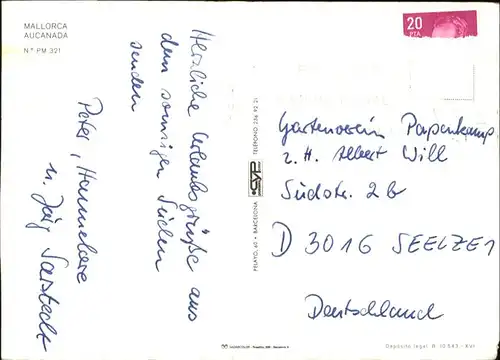 MALLORCA
AUCANADA
N.º PM 321
Herzliche Urlaubsgrüße aus
dem sonnigen Süden
senden
Peter, Hannelore
u. Jörg Sarstedt
20
PTA
PELAYO, 60 • BARCELONA
TELEFONO
Gartenverein Papenkamp
z. H. Albert Will
Südstr. 2b
D 3016 SEELZE 1
Deutschland
Depósito legal B. 10 543 - XVI